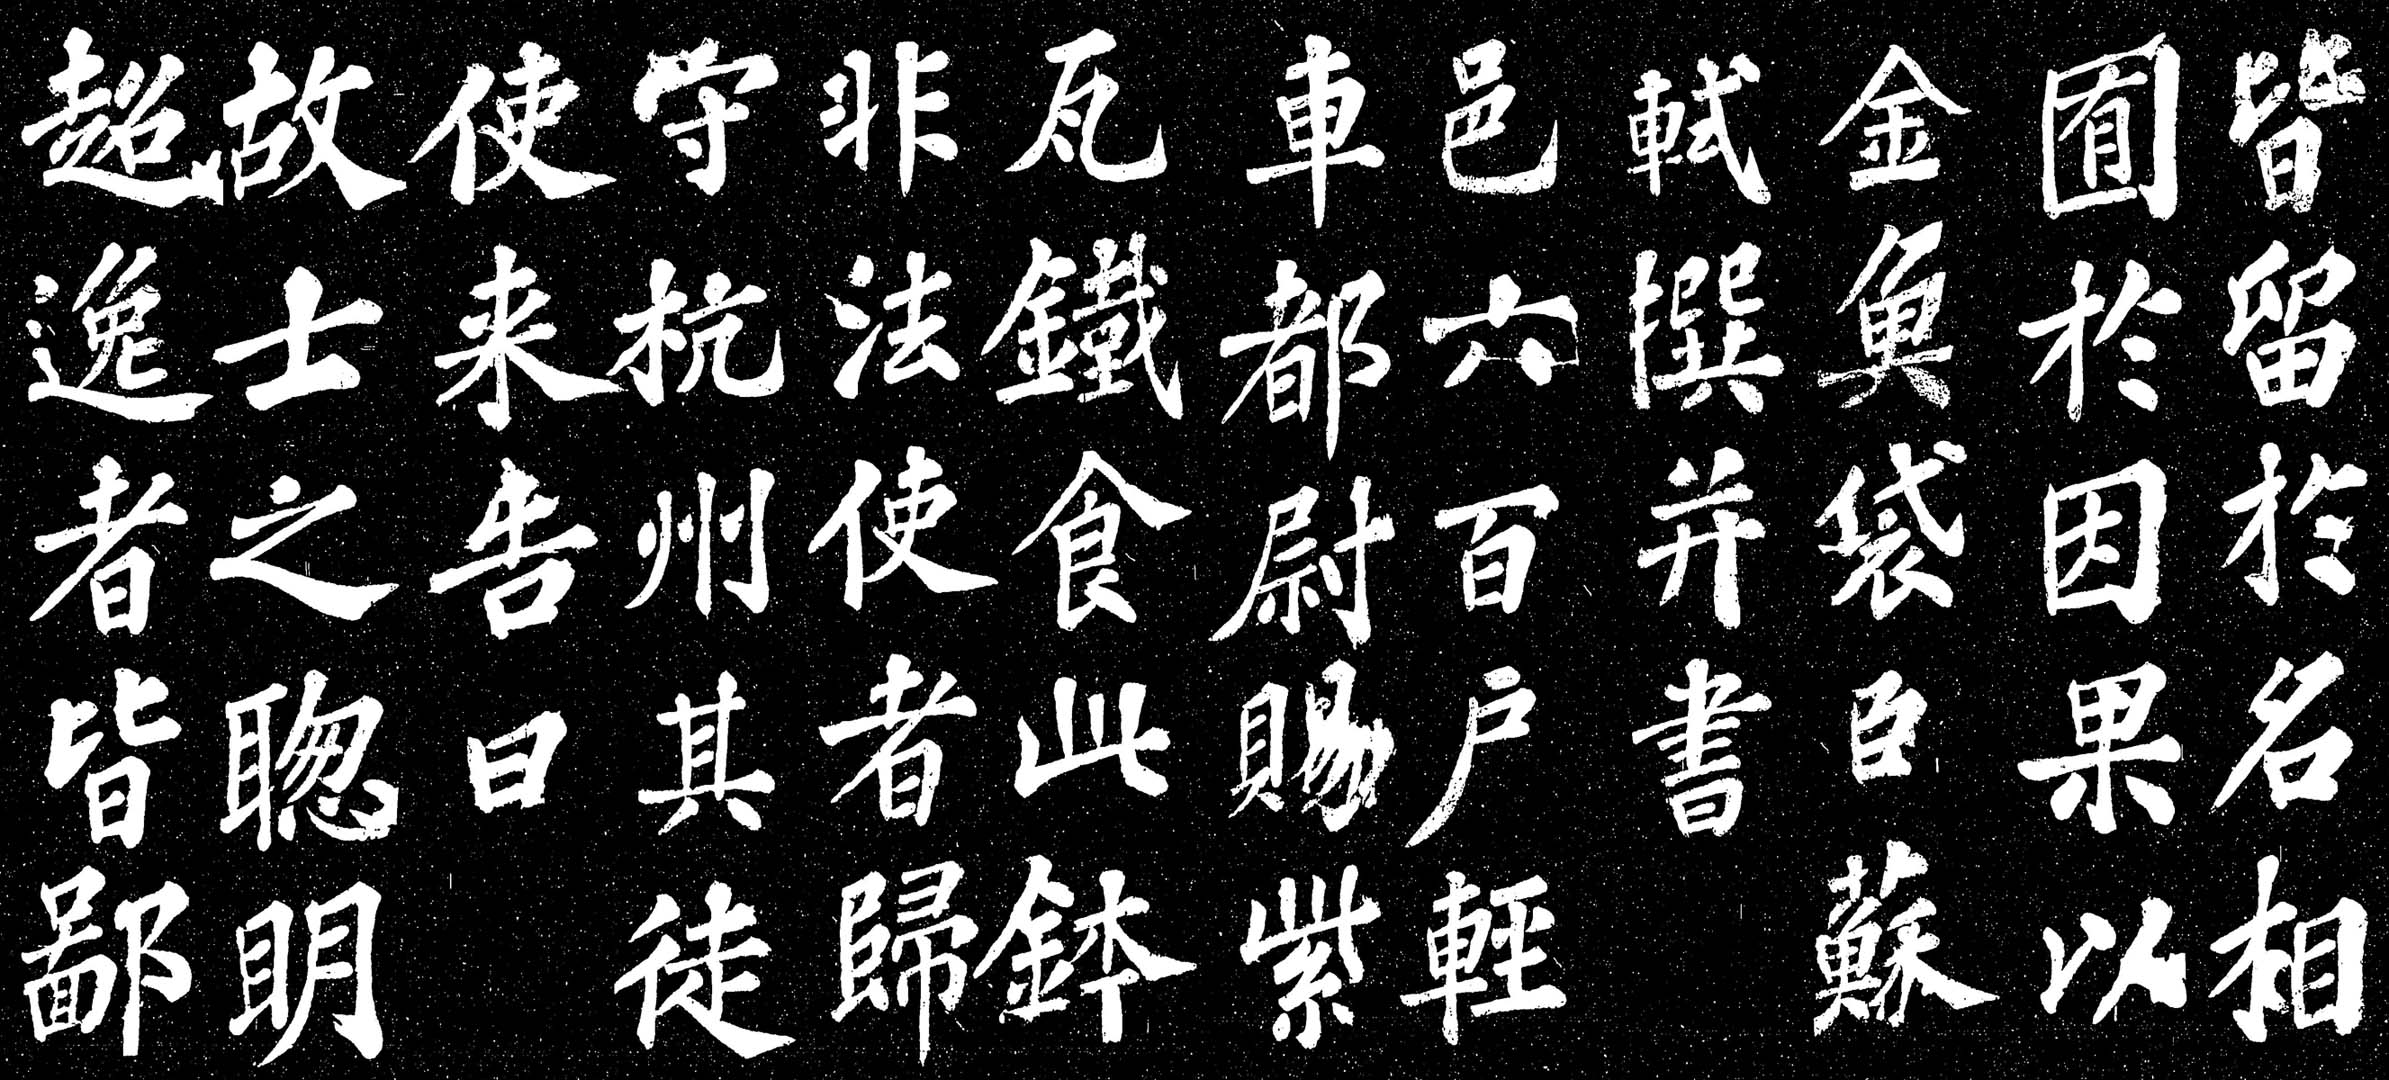 皆留於名相
囿於因果以
金魚袋臣蘇
軾撰并書
邑六百户輕
車都尉賜紫
瓦鐵食此鉢
非法使者歸
守杭州其徒
使来告曰
故士之聦明
超逸者皆鄙